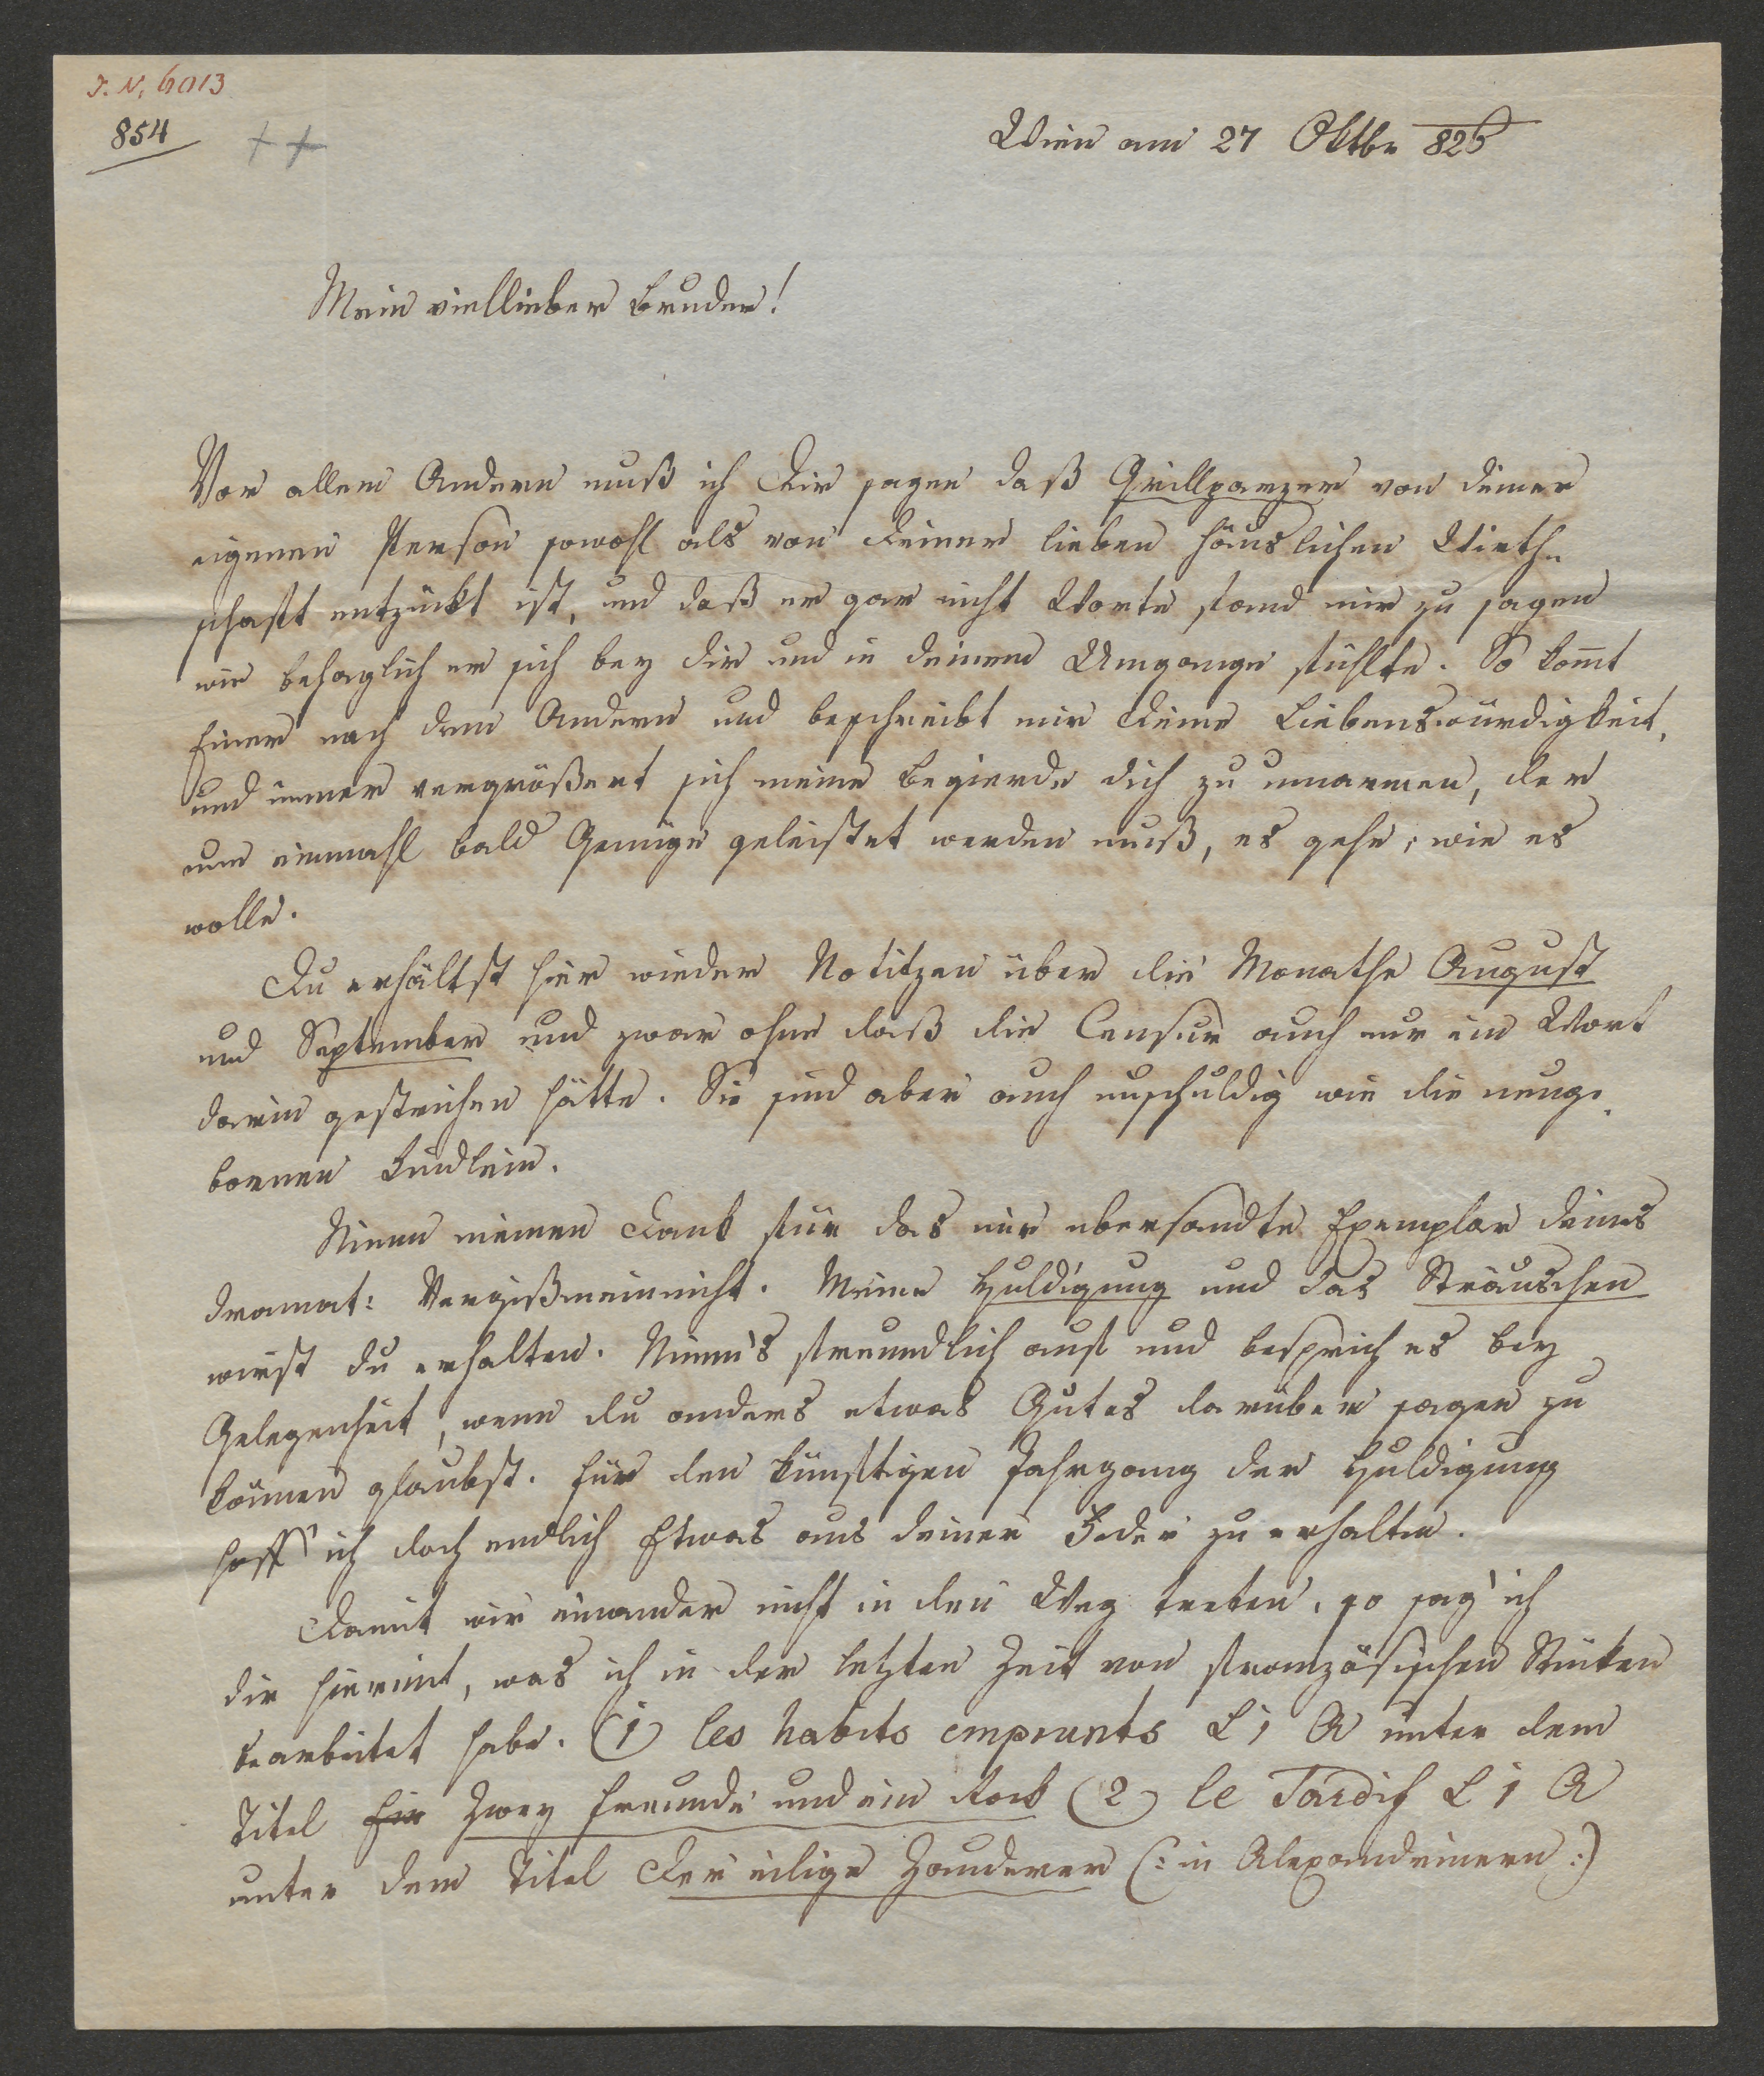 I. N. 6013
854
Wien am 27 Oktbr 826
Mein viellieber Bruder!
Vor allem Andern muß ich Dir sagen daß Grillparzer von deiner
eigenen Person sowohl als von deiner lieben häuslichen Wirth-
schaft entzückt ist, und daß er gar nicht Worte fand mir zu sagen
wie behaglich er sich bey dir und in deinem Umgange fühlte. So kom̅t
Einer nach dem Andern und beschreibt mir deine Liebenswürdigkeit,
und immer vergrößert sich meine Begierde dich zu umarmen, der
nun einmahl bald Genüge geleistet werden muß, es gehe, wie es
wolle.
Du erhältst hier wieder Notitzen über die Monathe August
und September und zwar ohne daß die Censur auch nur ein Wort
darin gestrichen hätte. Sie sind aber auch unschuldig wie die neuge-
bornen Kindlein.
Nimm meinen Dank für das mir übersandte Exemplar deines
dramat: Vergißmeinnicht. Meine Huldigung und das Sträuschen
wirst du erhalten. Nimm's freundlich auf und besprich es bey
Gelegenheit, wenn du anders etwas Gutes darüber sagen zu
können glaubst. Für den künftigen Jahrgang der Huldigung
hoff' ich doch endlich Etwas aus deiner Feder zu erhalten.
Damit wir einander nicht in den Weg treten, so sag' ich
dir hiermit, was ich in der letzten Zeit von französischen Stücken
bearbeitet habe. (1) les habits emprunts L 1 A unter dem
Titel Ein Zwey Freunde und ein Rock (2) le Tardif L 1 A
unter dem Titel Der eilige Zauderer (: in Alexandrinern :)